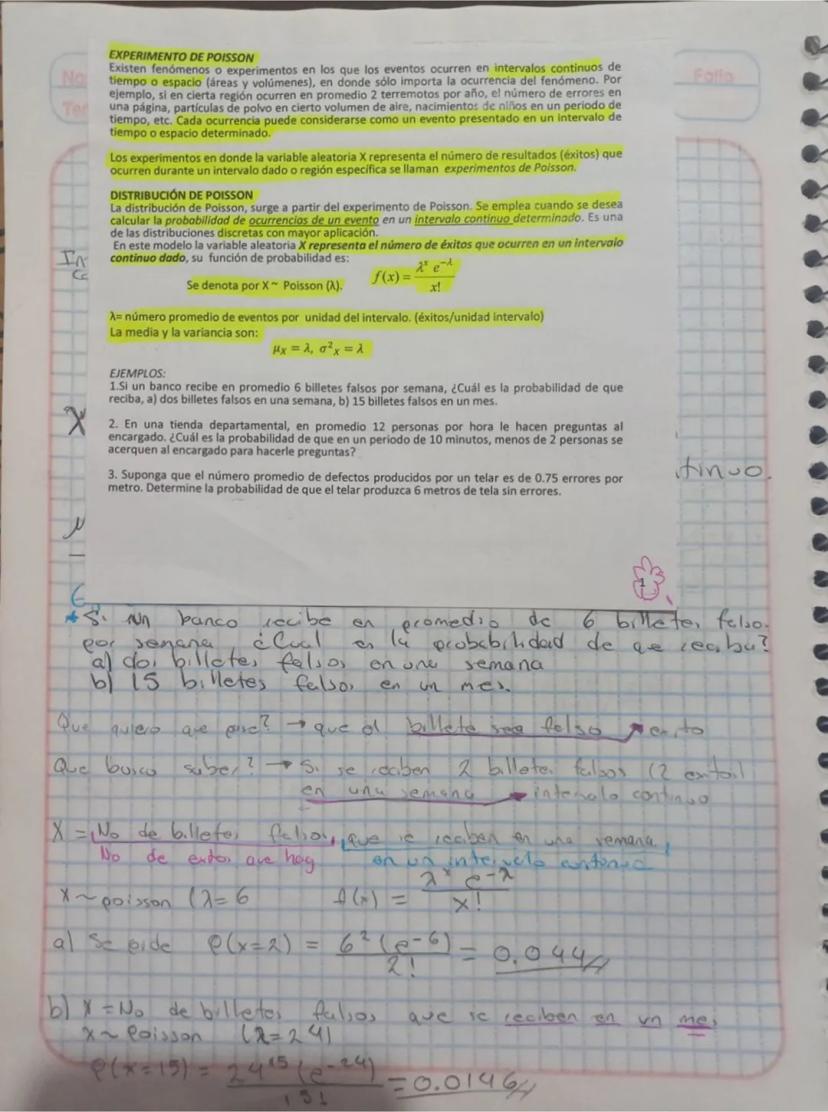 No
Tem
Folio
EXPERIMENTO DE POISSON
Existen fenómenos o experimentos en los que los eventos ocurren en intervalos continuos de
tiempo o espacio (áreas y volúmenes), en donde sólo importa la ocurrencia del fenómeno. Por
ejemplo, si en cierta región ocurren en promedio 2 terremotos por año, el número de errores en
una página, partículas de polvo en cierto volumen de aire, nacimientos de niños en un periodo de
tiempo, etc. Cada ocurrencia puede considerarse como un evento presentado en un intervalo de
tiempo o espacio determinado.
Los experimentos en donde la variable aleatoria X representa el número de resultados (éxitos) que
ocurren durante un intervalo dado o región específica se llaman experimentos de Poisson.
DISTRIBUCIÓN DE POISSON
La distribución de Poisson, surge a partir del experimento de Poisson. Se emplea cuando se desea
calcular la probabilidad de ocurrencias de un evento en un intervalo continuo determinado. Es una
de las distribuciones discretas con mayor aplicación.
En este modelo la variable aleatoria X representa el número de éxitos que ocurren en un intervalo
continuo dado, su función de probabilidad es:
Se denota por X ~ Poisson (λ). f(x) = λˣ e^-λ / x!
λ= número promedio de eventos por unidad del intervalo. (éxitos/unidad intervalo)
La media y la variancia son:
μx = λ, σ²x = λ
EJEMPLOS:
1.Si un banco recibe en promedio 6 billetes falsos por semana, ¿Cuál es la probabilidad de que
reciba, a) dos billetes falsos en una semana, b) 15 billetes falsos en un mes.
2. En una tienda departamental, en promedio 12 personas por hora le hacen preguntas al
encargado. ¿Cuál es la probabilidad de que en un periodo de 10 minutos, menos de 2 personas se
acerquen al encargado para hacerle preguntas?
3. Suponga que el número promedio de defectos producidos por un telar es de 0.75 errores por
metro. Determine la probabilidad de que el telar produzca 6 metros de tela sin errores.
In
X
tinuo.
μ
1
* Si un banco recibe en promedio de 6 billetes falsos
por semana ¿Cual es la probabilidad de que reciba?
a) dos billetes falsos en una semana
b) 15 billetes falsos en un mes.
Que quiero que pase? → que el billete sea falso → exito
Que busco saber? → Si se reciben 2 billetes falsos (2 exitos)
en una semana → intervalo continuo
X = No de billetes falsos, que se reciben en una semana,
No de exitos que hay en un intervalo continuo
X ~ poisson (λ=6 f(x) = λˣ e^-λ / x!
a) Se pide P(x=2) = 6² (e^-6) / 2! = 0.044
b) X = No de billetes falsos que se reciben en un mes
X ~ Poisson (λ=24)
P(x=15) = 24^15 (e^-24) / 15! = 0.0146